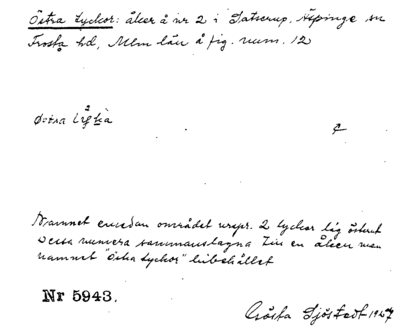 Östra Lyckor: åker å nr 2 i Satserup. Äspinge sn
Frosta hd, Mlm län å fig. num. 12
¢
Namnet emedan området urspr. 2 lyckor låg österut
dessa numera sammanslagna till en åker men
namnet "Östra Lyckor" bibehållet
Nr 5943.
Gösta Sjöstedt 1947